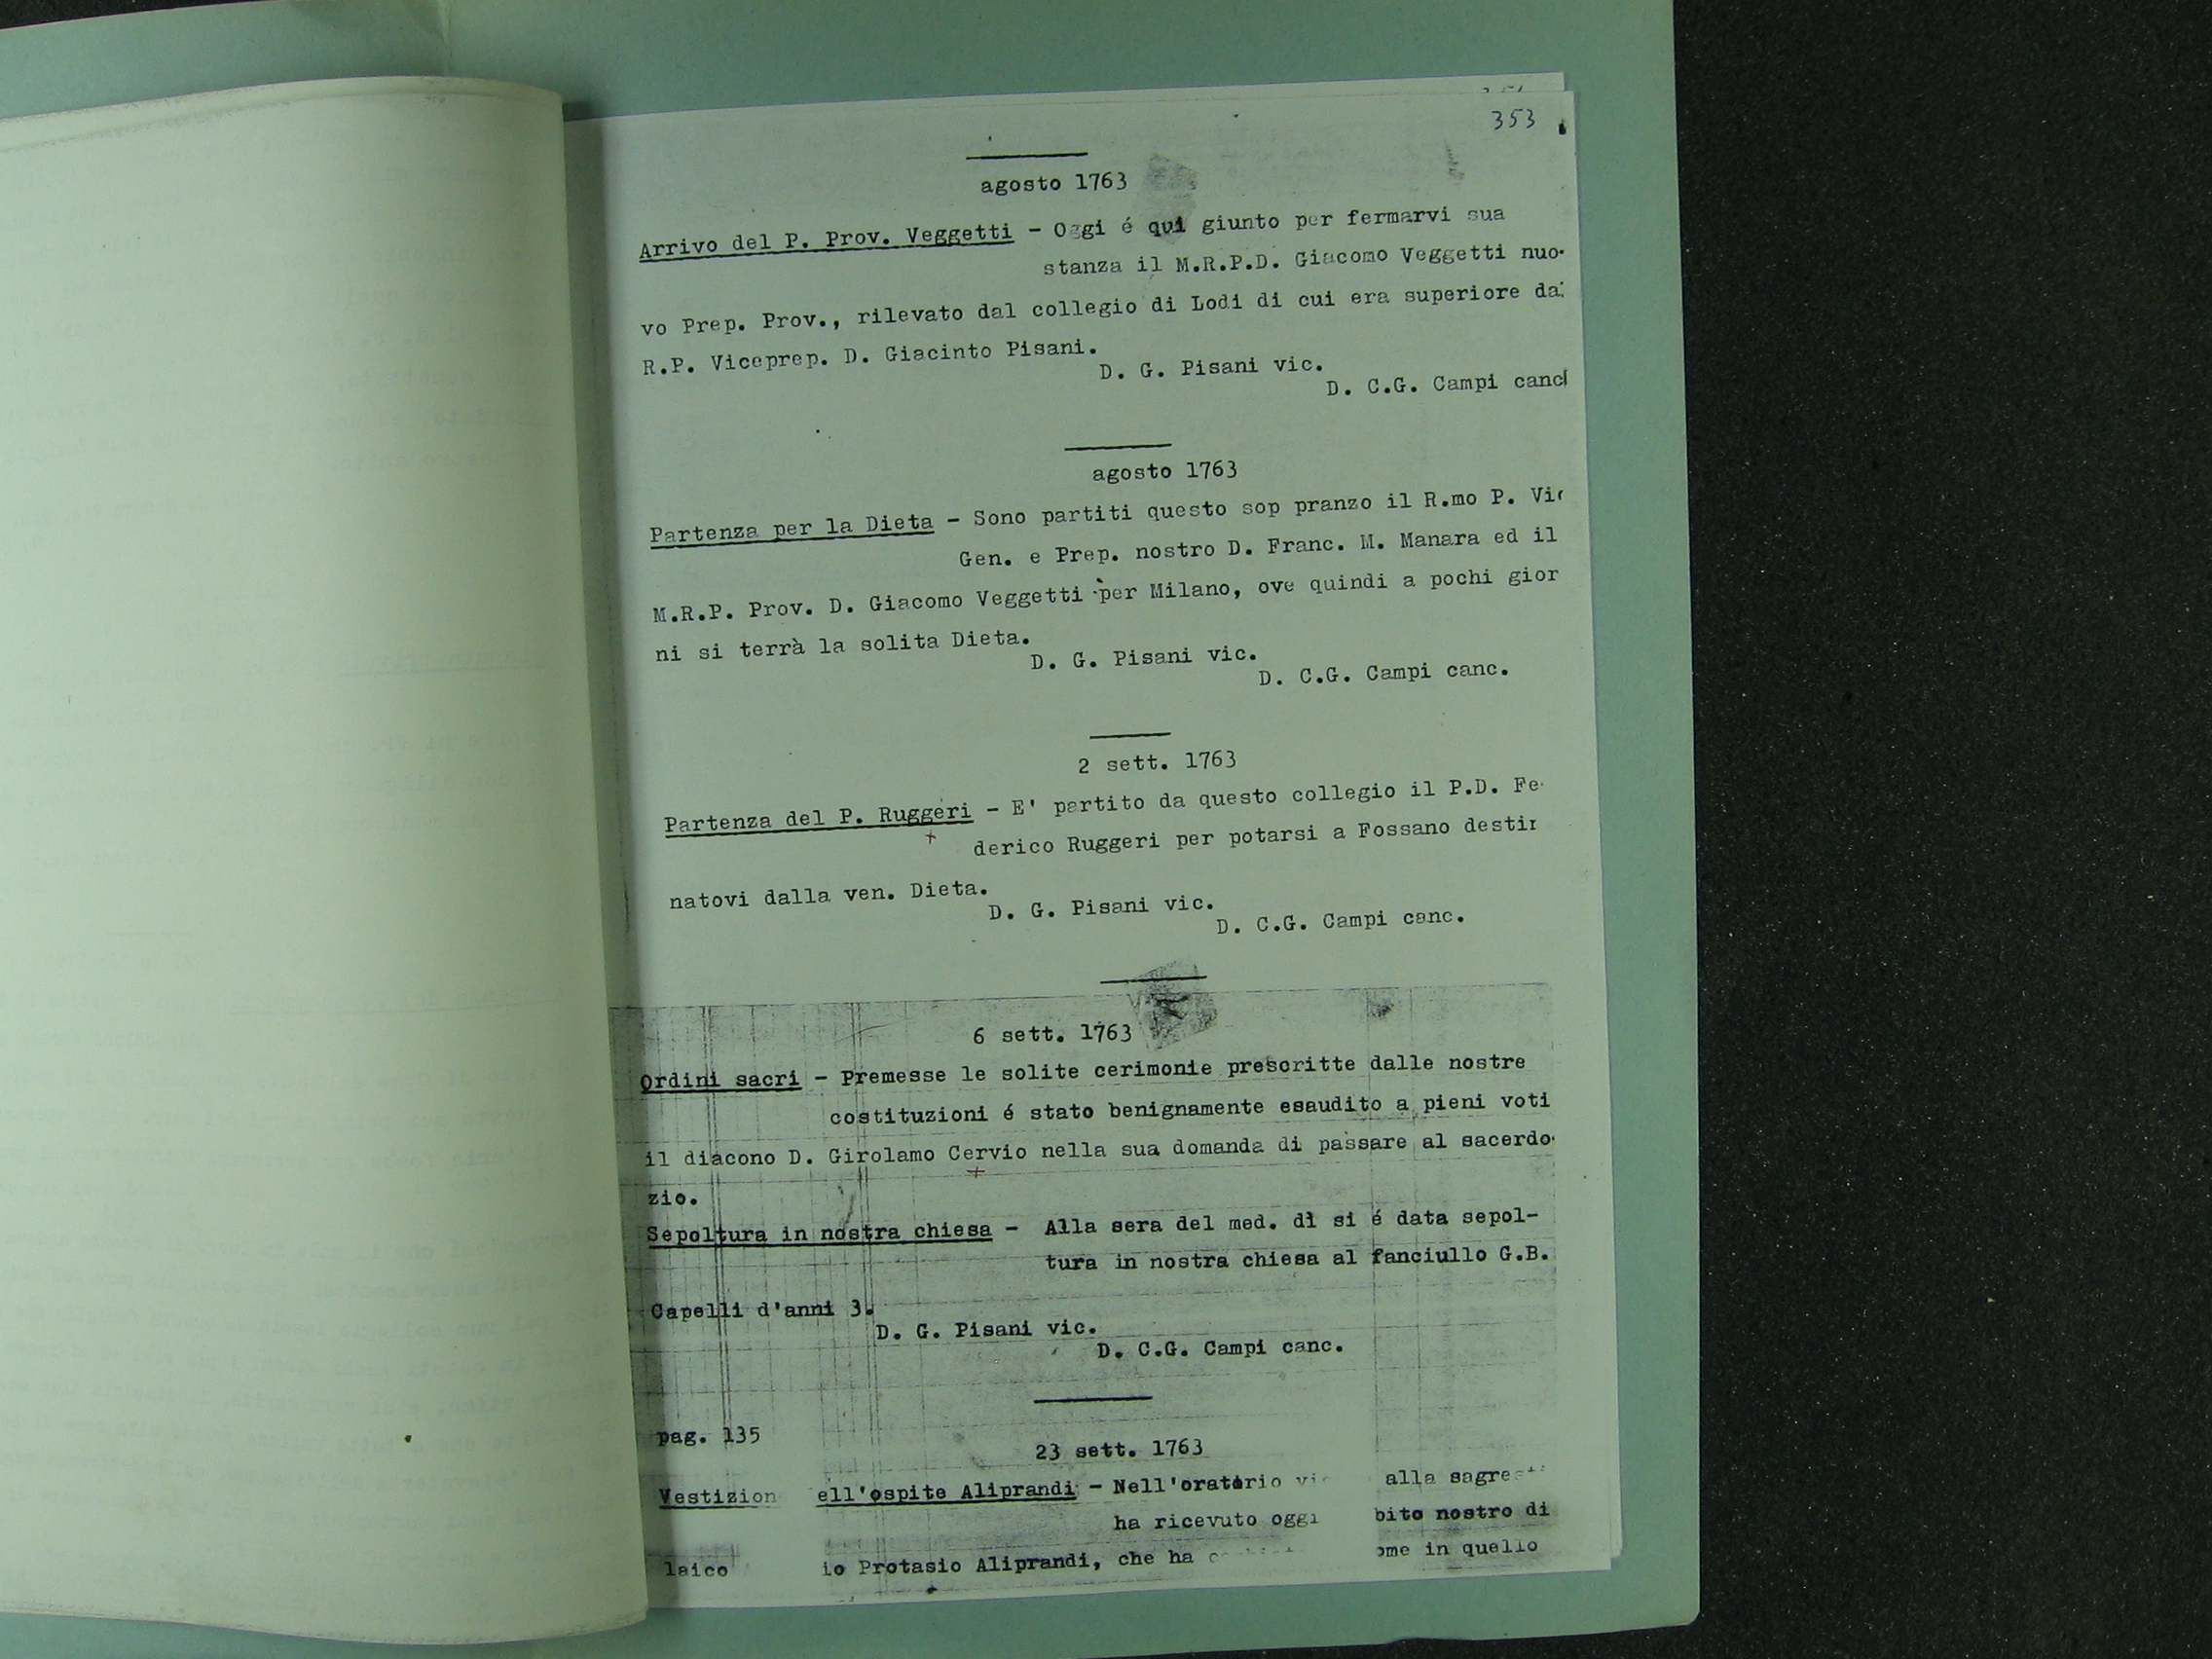 353
agosto 1763
Arrivo del P. Prov. Veggetti - Oggi é qui giunto per fermarvi sua
stanza il M.R.P.D. Giacomo Veggetti nuo-
vo Prep. Prov., rilevato dal collegio di Lodi di cui era superiore da
R.P. Viceprep. D. Giacinto Pisani.
D. G. Pisani vic.
D. C.G. Campi canc
agosto 1763
Partenza per la Dieta - Sono partiti questo sop pranzo il R.mo P. Vic
Gen. e Prep. nostro D. Franc. M. Manara ed il
M.R.P. Prov. D. Giacomo Veggetti per Milano, ove quindi a pochi gior
ni si terrà la solita Dieta.
D. G. Pisani vic.
D. C.G. Campi canc.
2 sett. 1763
Partenza del P. Ruggeri - E' partito da questo collegio il P.D. Fe-
derico Ruggeri per potarsi a Fossano desti
natovi dalla ven. Dieta.
D. G. Pisani vic.
D. C.G. Campi canc.
6 sett. 1763
Ordini sacri - Premesse le solite cerimonie prescritte dalle nostre
costituzioni é stato benignamente esaudito a pieni voti
il diacono D. Girolamo Cervio nella sua domanda di passare al sacerdo-
zio.
Sepoltura in nostra chiesa - Alla sera del med. dì si é data sepol-
tura in nostra chiesa al fanciullo G.B.
Capelli d'anni 3.
D. G. Pisani vic.
D. C.G. Campi canc.
pag. 135
23 sett. 1763
Vestizion ell'ospite Aliprandi - Nell'oratorio alla
ha ricevuto oggi bito nostro di
laico io Protasio Aliprandi, che ha ome in quello